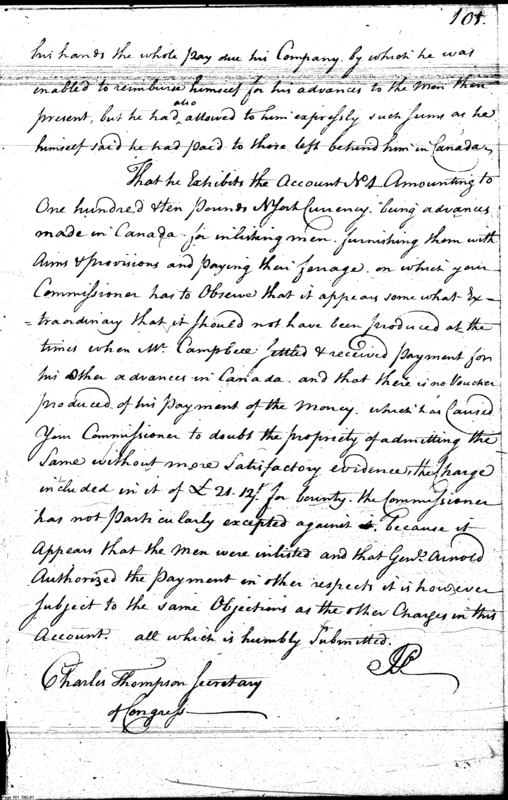 101.
his hands the whole pay due his Company. by which he was
enabled to reimburse himself for his advances to the men then
present, but he had also allowed to him expressly such sums as he
himself said he had paid to those left behind him in Canada,
That he Exhibits the Account No. 1 Amounting to
One hundred & ten pounds N York Currency. being advances
made in Canada for inlisting men, furnishing them with
Arms & provisions and paying their ferrage. on which your
Commissioner has to Observe that it appears some what Ex-
=traordinary that it should not have been produced at the
times when Mr. Campbell settled & received payment for
his other advances in Canada. and that there is no Voucher
produced of his Payment of the Money. which has Caused
Your Commissioner to doubt the propriety of admitting the
Same without more Satisfactory evidence, the Charge
included in it of £ 21. 12/. for bounty. the Commissioner
has not Particularly excepted against because it
Appears that the Men were inlisted and that Genl. Arnold
Authorized the payment in other respects it is however
subject to the same Objections as the other Charges in this
Account. all which is humbly Submitted.
Charles Thompson Secretary
of Congress